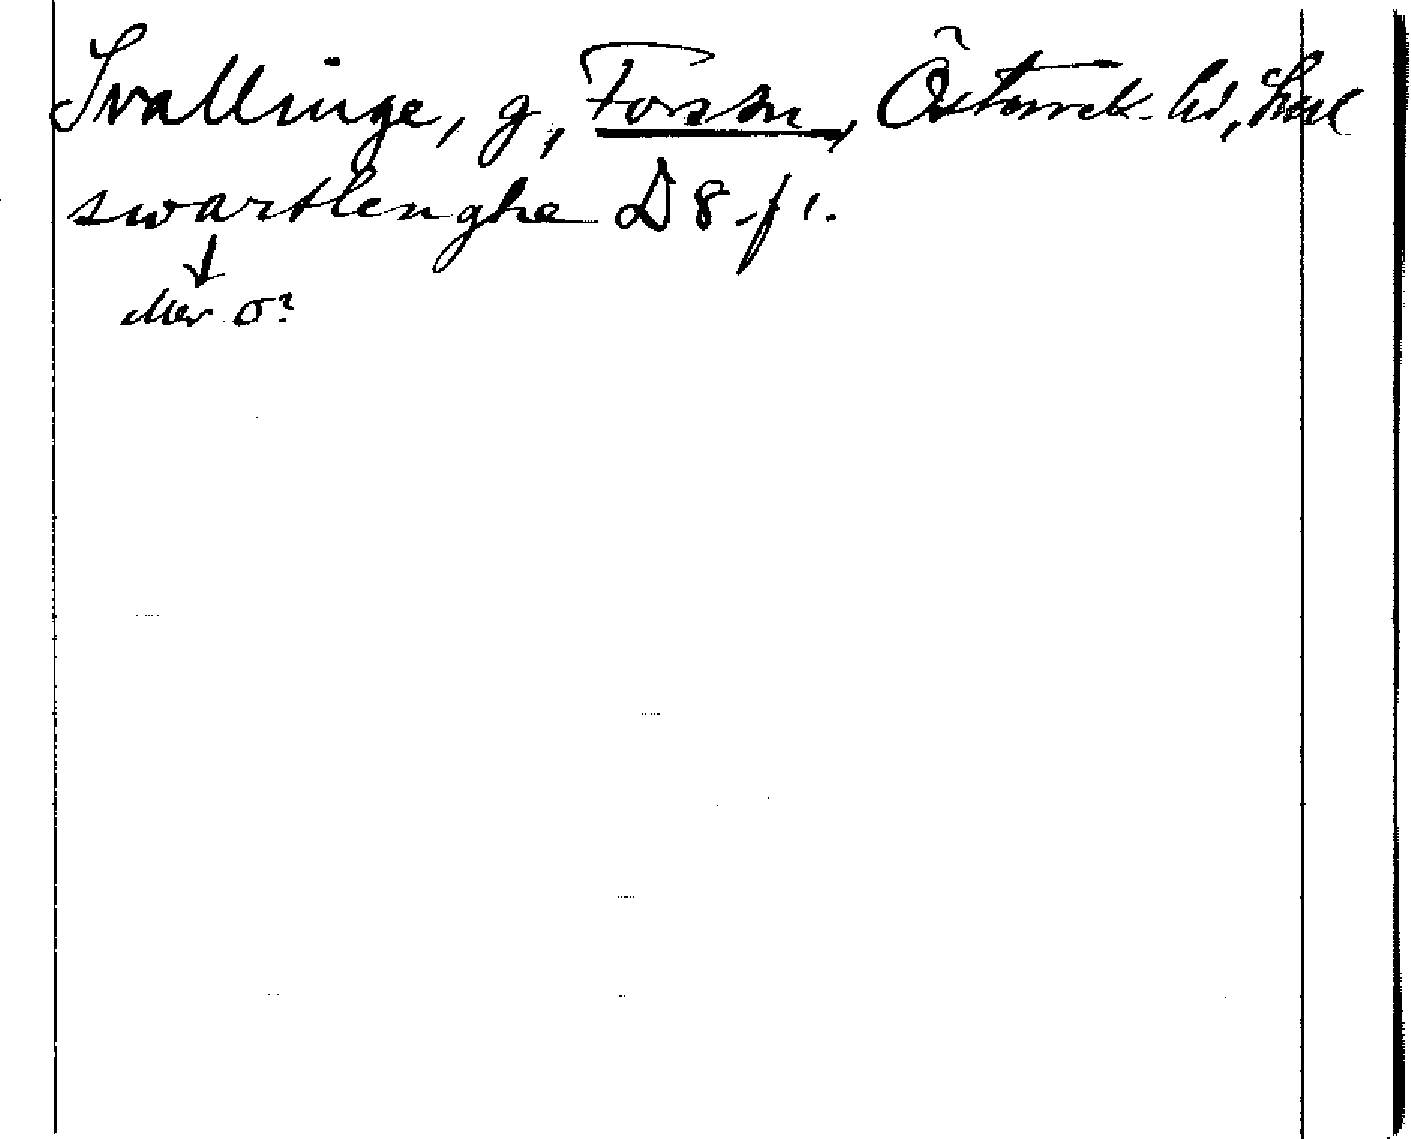 Svallinge, g, Forssa, Österrek. hd, Hsl
swartlenghe D 8 f 1.
Mer o?